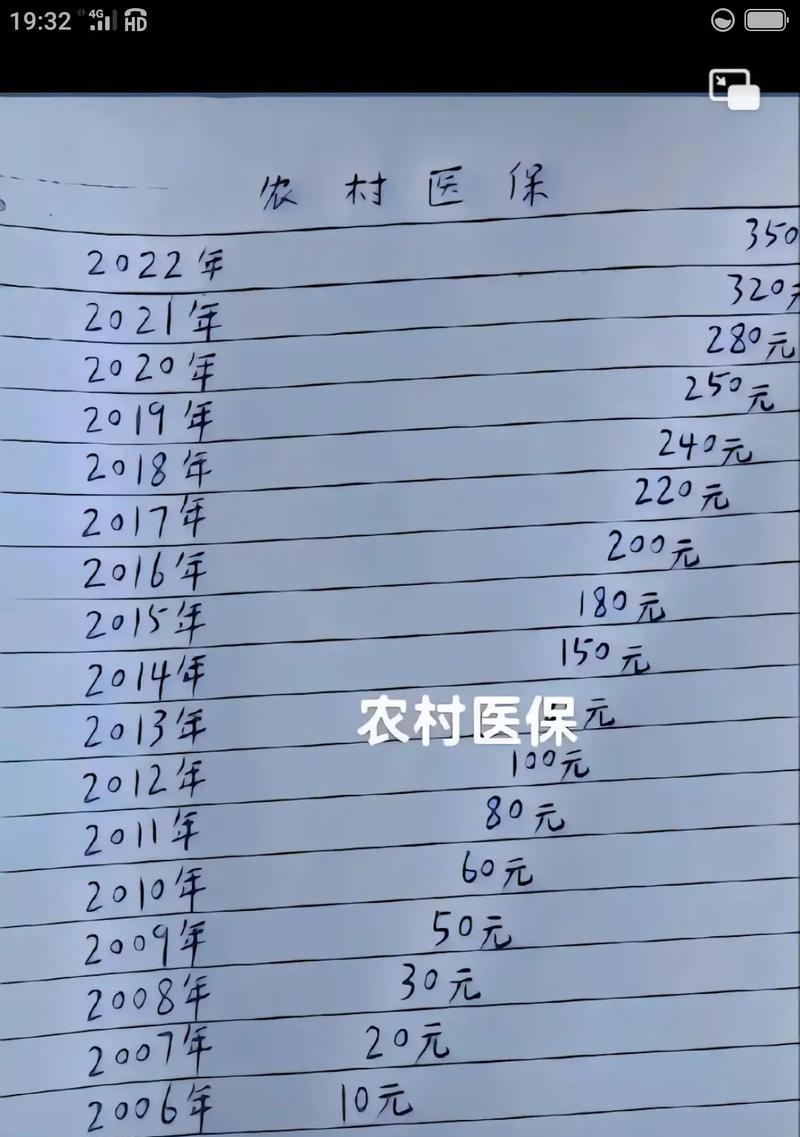 19:32 4G HD
农村医保
2022年 350
2021年 320
2020年 280元
2019年 250元
2018年 240元
2017年 220元
2016年 200元
2015年 180元
2014年 150元
2013年 元
农村医保
2012年 100元
2011年 80元
2010年 60元
2009年 50元
2008年 30元
2007年 20元
2006年 10元